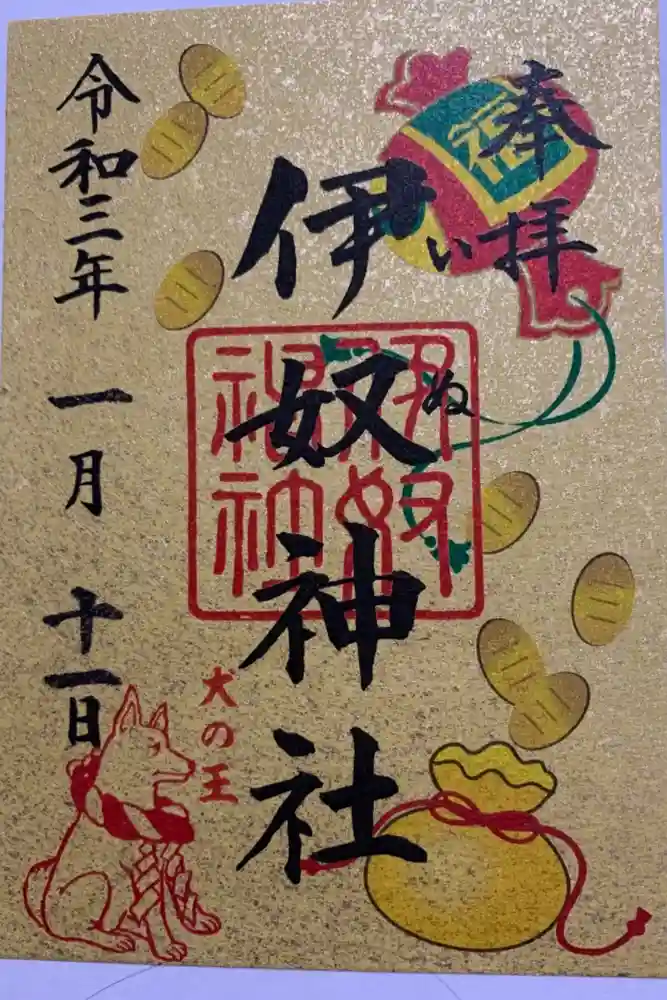 奉拝
福
伊奴神社
いぬ
伊奴神社
犬の王
令和三年 一月 十一日